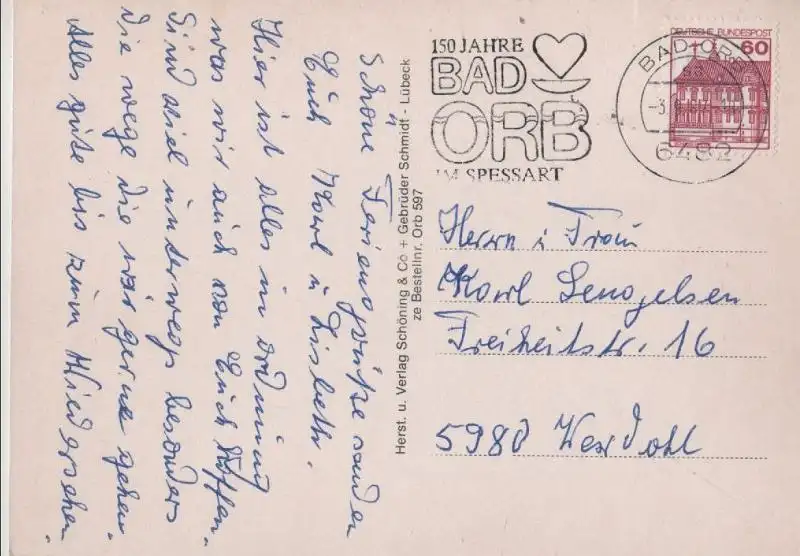 Schöne Feriengrüße senden
Euch Karl u Lisbeth.
Hier ist alles in ordnung
was wir auch von Euch hoffen.
Sind viel unterwegs besonders
die wege die wir gerne gehen.
Alles gute bis zum Wiedersehen
Herst. u. Verlag Schöning & Co + Gebrüder Schmidt - Lübeck
ze Bestellnr. Orb 597
150 JAHRE
BAD
ORB
IM SPESSART
BAD ORB
6482
DEUTSCHE BUNDESPOST
60
Herrn u Frau
Karl Sengelsen
Freiheitstr. 16
5980 Werdohl